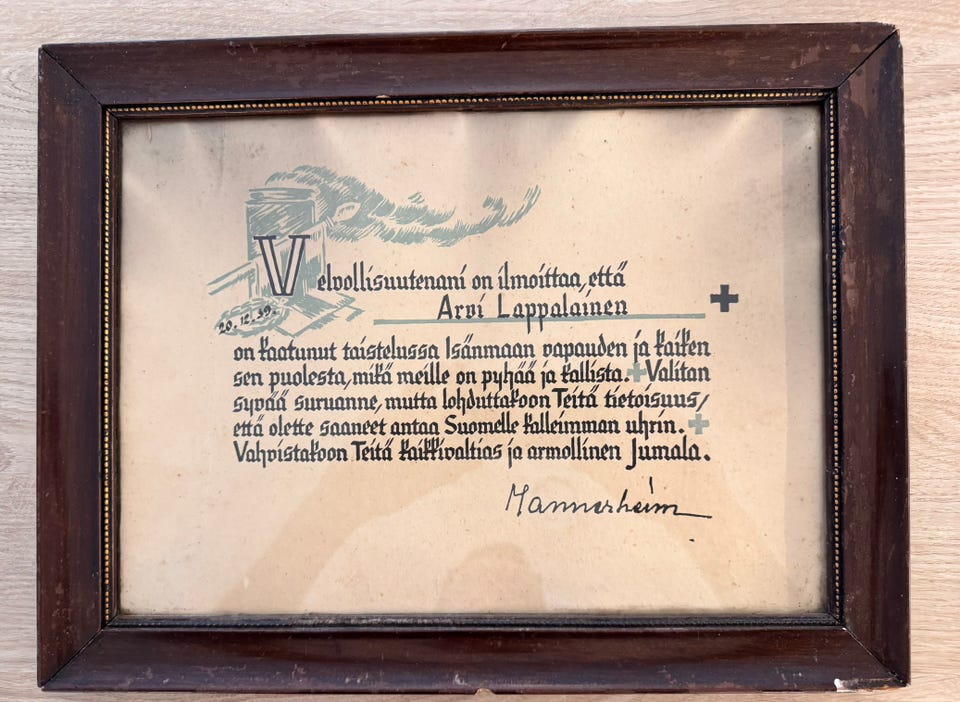 Velvollisuutenani on ilmoittaa, että
Arvi Lappalainen
20.12.39.
on kaatunut taistelussa Isänmaan vapauden ja kaiken
sen puolesta, mikä meille on pyhää ja kallista. Valitan
syvää suruanne, mutta lohduttakoon Teitä tietoisuus,
että olette saaneet antaa Suomelle kalleimman uhrin.
Vahvistakoon Teitä kaikkivaltias ja armollinen Jumala.
Mannerheim